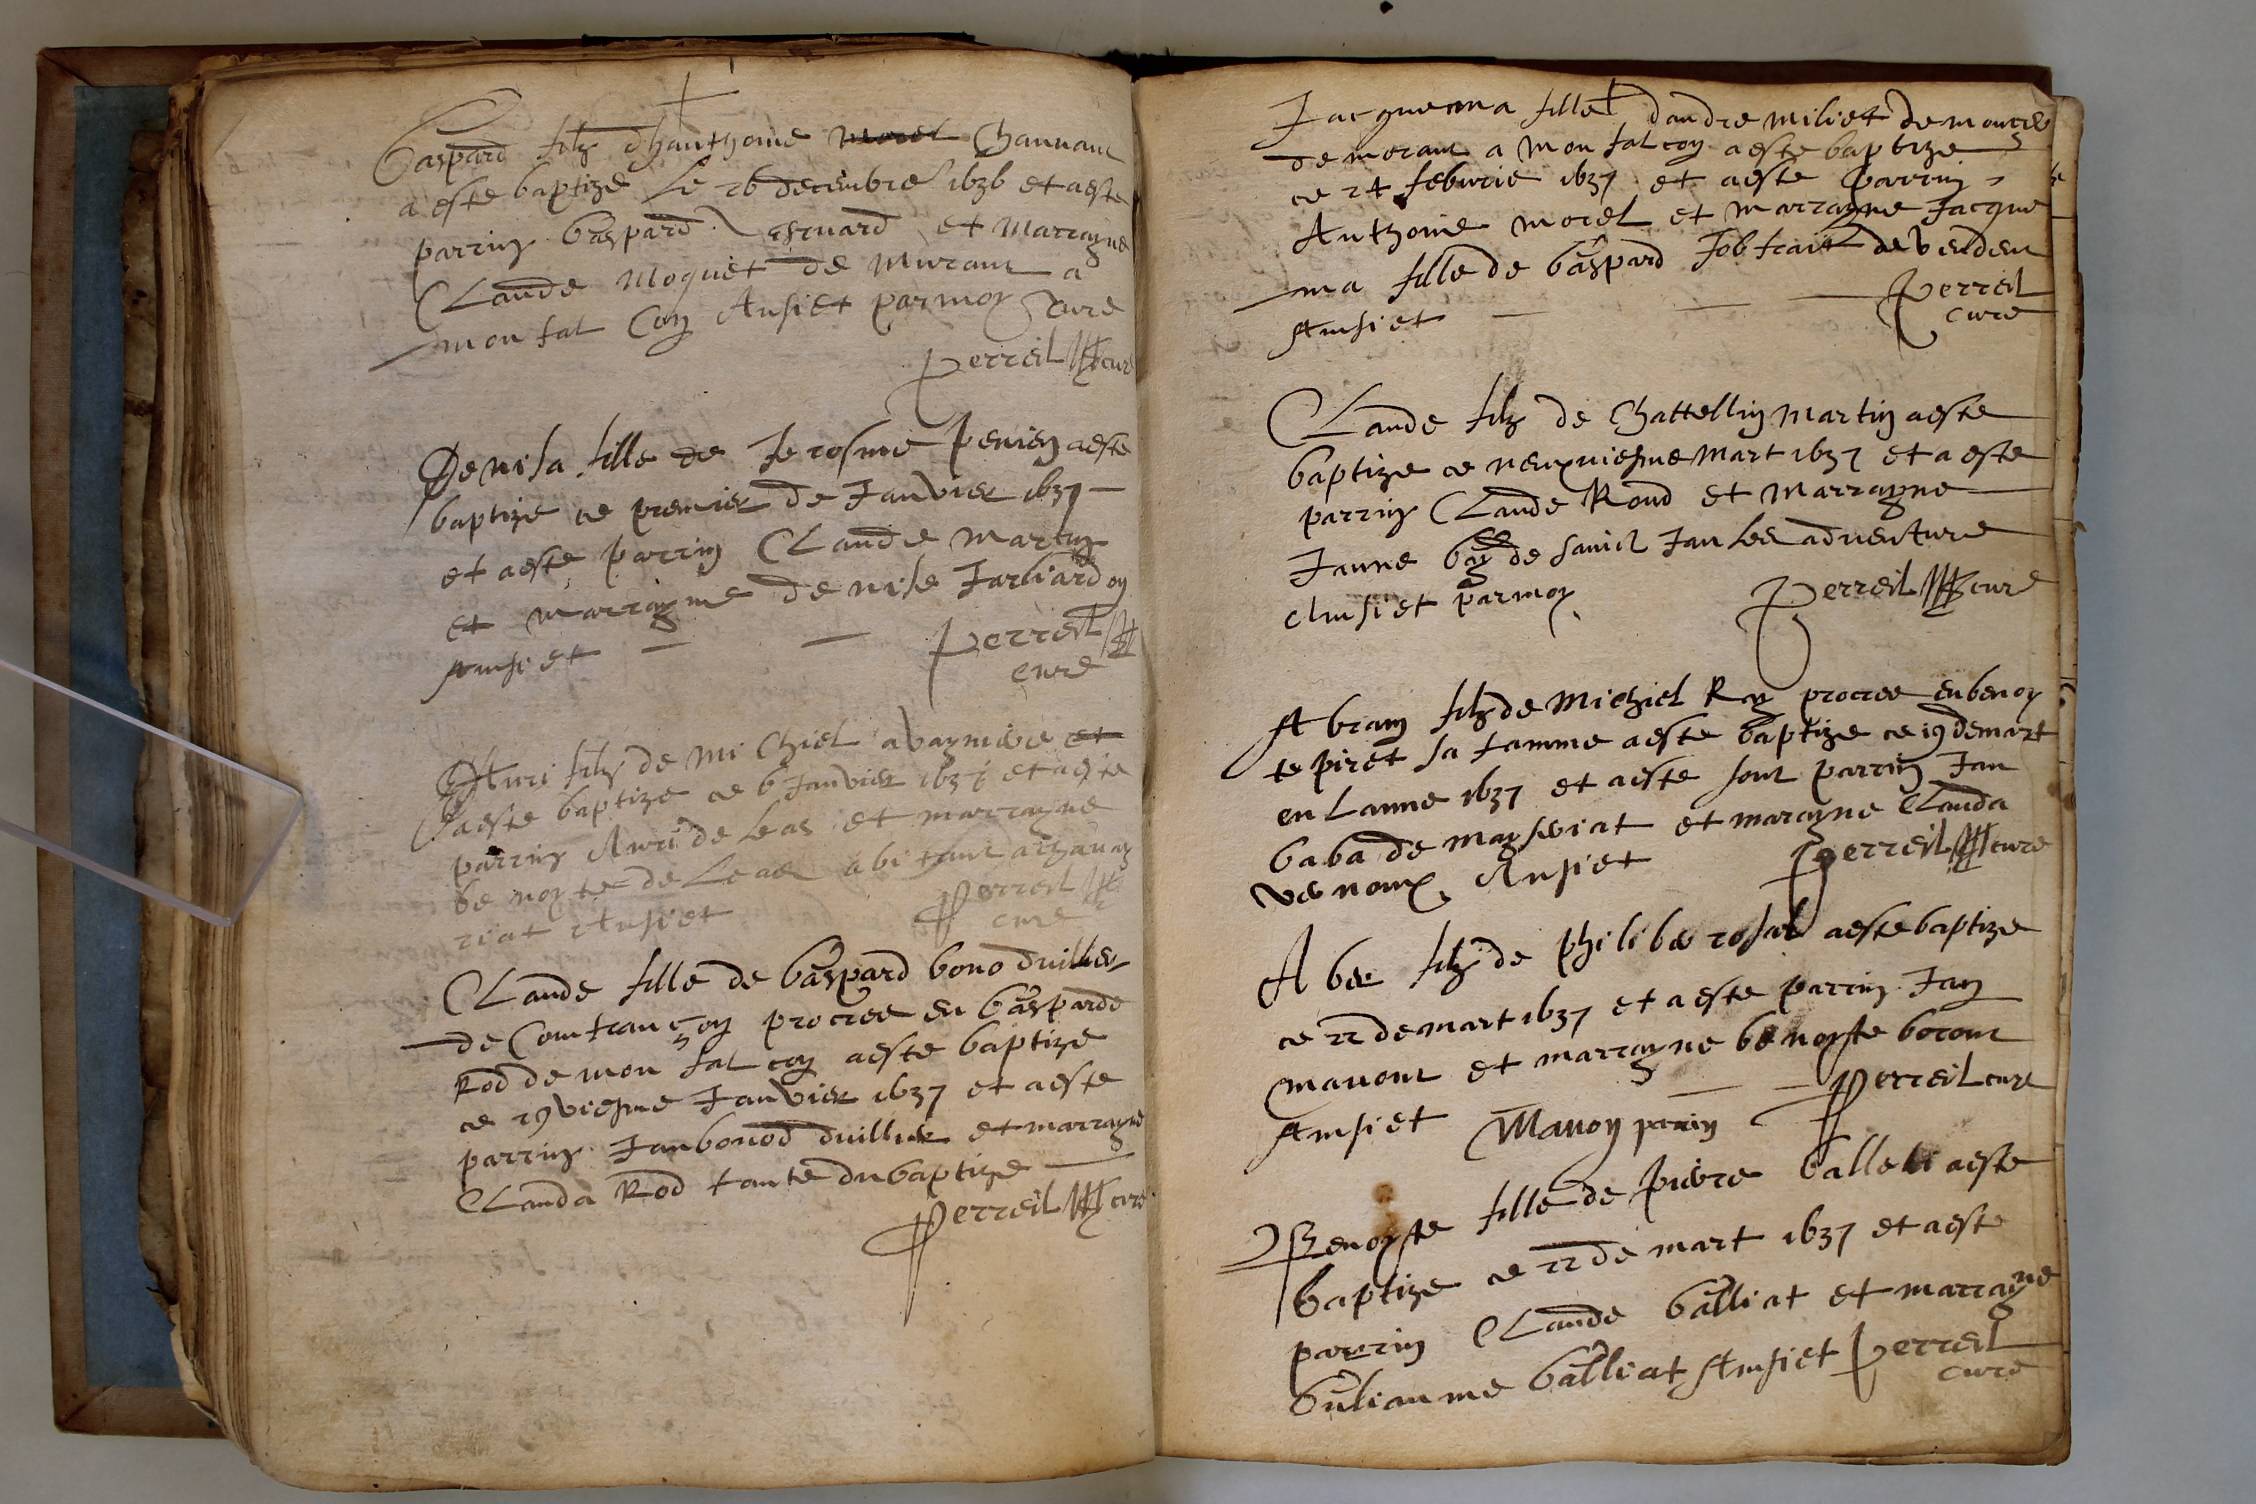 Gaspard filz dhanthoine Channant
a este baptize Le 26 decembre 1636 et a este
parrin Gaspard et Marrayne
Claude Moquet de Murant a
mon fal con Ansiet par moy cure
Perreil cure
Denisa fille de Jerosme Penien a este
baptize ce premier de Janvier 1637
et a este parrin Claude Martin
et marrayne denise Jarliardon
Ainsi et
Perreil
cure
filz de Michiel avaynière
a este baptize ce 6 Janvier 1637 et a este
parrin de Leas et marrayne
benoyte de Leas abitant a
riat Ansiet
Perreil
cure
Claude fille de Gaspard bonod duillier
de Confrançon procree en Gasparde
Rod de mon fal con a este baptize
ce 29 viesme Janvier 1637 et a este
parrin Jan bonod duillier et marrayne
Clauda Rod tante du baptize
Perreil cure
Jacquema fille dandre Miliet de
demorant a Mon fal con a este baptize
ce 24 feburie 1637 et a este parrin
Anthoine Morel et marrayne Jacque
ma fille de Gaspard Jobfrait de
Ainsiet
Perreil
cure
Claude filz de Chattellin Martin a este
baptize ce neuxviesme Mart 1637 et a este
parrin Claude Rond et Marrayne
Janne Gay de sainct Jan les adventure
Ansiet par moy
Perreil cure
Abram filz de Michiel Ry procree en benoy
te piret sa famme a este baptize ce 19 de mart
en Lanne 1637 et a este sont parrin Jan
baba de et marayne Clauda
venoux Ansiet
Perreil cure
Aber filz de philibe rosat a este baptize
ce 22 de mart 1637 et a este parrin Jan
manont et marrayne benoyste bocont
Ainsiet Manon parrin Perreil cure
Benoyste fille de pierre a este
baptize ce 22 de mart 1637 et a este
parrin Claude Galliat et marrayne
Guliaumne Galliat Ainsiet Perreil
cure